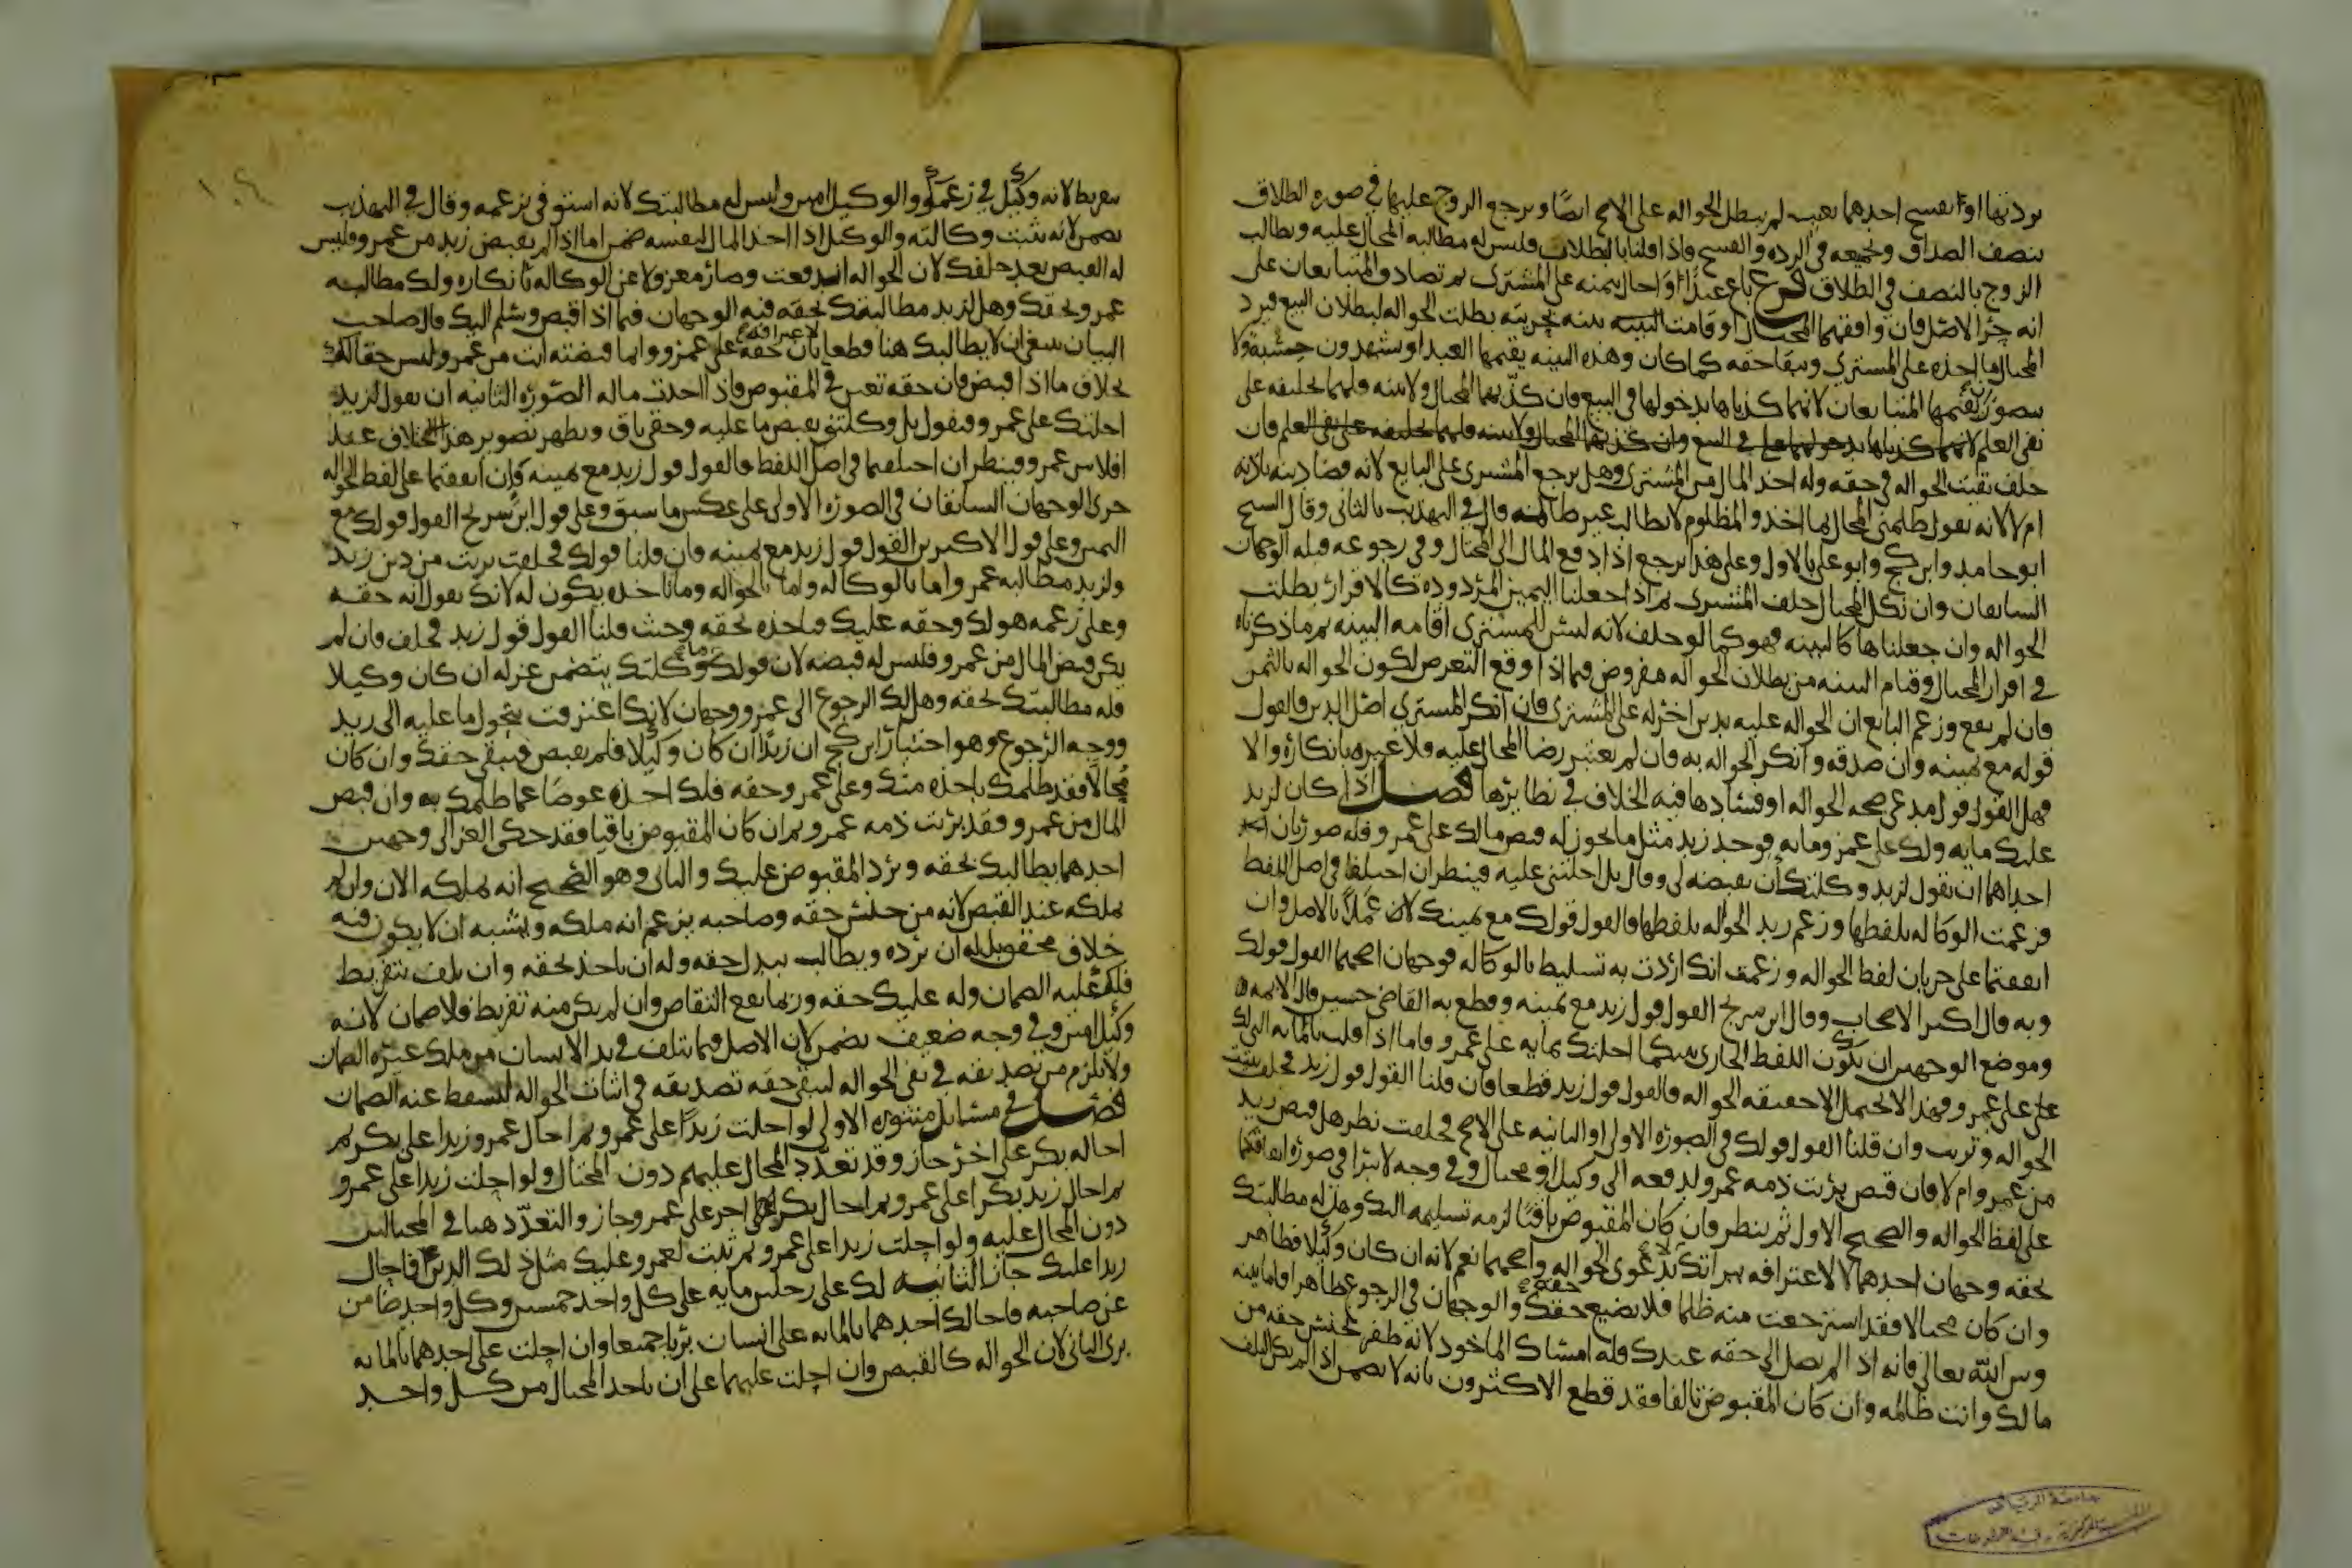 بردتها او انفسخ احدهما بعيب لم يبطل الحواله على الاصح ايضًا ويرجع الزوج عليها في صوره الطلاق
بنصف الصداق وبجميعه في الرده والفسخ واذا قلنا بالبطلان فليس له مطالبه المحال عليه ويطالب
الزوج بالنصف في الطلاق فرع باع عبدًا واحال بثمنه على المشترى ثم تصادق المتبايعان على
انه حر الاصل فان وافقهما المحتال او قامت البينه بحريته بطلت الحواله لبطلان البيع فيرد
المحتال ما اخذه على المشتري ويبقا حقه كما كان وهذه البينه يقيمها العبد او يشهدون حسبه ولا
يتصور ان يقيمها المتبايعان لانهما كذباها بدخولهما في البيع فان كذبهما المحتال ولا بينه فلهما تحليفه على
نفي العلم فان
حلف بقيت الحواله في حقه وله اخذ المال من المشتري وهل يرجع المشتري على البايع لانه قضا دينه باذنه
ام لا لانه يقول ظلمني المحتال بما اخذ والمظلوم لا يطالب غير ظالمه قال في التهذيب بالثاني وقال الشيخ
ابو حامد وابن كج وابو علي بالاول وعلى هذا يرجع اذا دفع المال الى المحتال وفي رجوعه قبله الوجهان
السابقان وان نكل المحتال حلف المشتري ثم اذا جعلنا اليمين المردوده كالاقرار بطلت
الحواله وان جعلناها كالبينه فهو كما لو حلف لانه ليس للمشتري اقامه البينه ثم ما ذكرناه
في اقرار المحتال وقيام البينه من بطلان الحواله مفروض فيما اذا وقع التعرض لكون الحواله بالثمن
فان لم يقع وزعم البايع ان الحواله عليه بدين اخر له على المشتري فان انكر المشتري اصل الدين فالقول
قوله مع يمينه وان صدقه وانكر الحواله به فان لم نعتبر رضا المحال عليه فلا عبره بانكاره والا
فهل القول قول مدعي صحه الحواله او فسادها فيه الخلاف في نظايرها فصل اذا كان لزيد
عليك مايه ولك على عمرو مايه فوجد زيد مثل ما يجوز له قبض مالك على عمرو فله صورتان
احداهما ان تقول لزيد وكلتك ان تقبضه لي وقال بل احلتني عليه فينظر ان اختلفا في اصل اللفظ
فزعمت الوكاله بلفظها وزعم زيد الحواله بلفظها فالقول قولك مع يمينك عملاً بالاصل وان
اتفقتما على جريان لفظ الحواله وزعمت انك اردت به تسليط بالوكاله فوجهان اصحهما القول قولك
وبه قال اكثر الاصحاب وقال ابن سريج القول قول زيد مع يمينه وقطع به القاضي حسين قال الايمه
وموضع الوجهين ان يكون اللفظ الجاري بينكما احلتك بمايه على عمرو فاما اذا قلت بالمايه التي لك
علي على عمرو فهذا لا يحتمل الا حقيقه الحواله فالقول قول زيد قطعا فان قلنا القول قول زيد فحلف ثبتت
الحواله وبريت وان قلنا القول قولك في الصوره الاولى او الثانيه على الاصح فحلفت نظر هل قبض زيد
من عمرو ام لا فان قبض برئت ذمه عمرو لدفعه الى وكيل او محتال وفي وجه لا يبرا في صوره اتفاقكما
على لفظ الحواله والصحيح الاول ثم ينظر فان كان المقبوض باقيا لزمه تسليمه اليك وهل له مطالبتك
بحقه وجهان احدهما لا لاعترافه ببراتك بدعوى الحواله واصحهما نعم لانه ان كان وكيلا فظاهر
وان كان محتالا فقد استرجعت منه ظلما فلا يضيع حقه والوجهان في الرجوع ظاهرا فاما بينه
وبين الله تعالى فانه اذا لم يصل الى حقه عندك فله امساك الماخوذ لانه ظفر بجنس حقه من
مالك وانت ظالمه وان كان المقبوض تالفا فقد قطع الاكثرون بانه لا يضمن اذا لم يكن التلف
بتفريط لانه وكيل في زعمك والوكيل امين وليس له مطالبتك لانه استوفى بزعمه وقال في التهذيب
يضمن لانه ثبتت وكالته والوكيل اذا اخذ المال لنفسه ضمن اما اذا لم يقبض زيد من عمرو فليس
له القبض بعد حلفك لان الحواله اندفعت وصار معزولا عن الوكاله بانكاره ولك مطالبه
عمرو بحقك وهل لزيد مطالبتك بحقه فيه الوجهان فيما اذا قبض وسلم اليك قال صاحب
البيان ينبغي ان لا يطالبك هنا قطعا لاعترافه بان حقه على عمرو وانما قبضته انت من عمرو ليس حقا له
بخلاف ما اذا قبض فان حقه تعين في المقبوض فاذا اخذت ماله الصوره الثانيه ان تقول لزيد
احلتك على عمرو فيقول بل وكلتني بقبض ما عليه وحقي باق ويظهر تصوير هذا الخلاف عند
افلاس عمرو فينظر ان اختلفتما في اصل اللفظ فالقول قول زيد مع يمينه وإن اتفقتما على لفظ الحواله
جرى الوجهان السابقان في الصوره الاولى على عكس ما سبق وعلى قول ابن سريج القول قولك مع
اليمين وعلى قول الاكثرين القول قول زيد مع يمينه فان قلنا قولك فحلفت بريت من دين زيد
ولزيد مطالبه عمرو اما بالوكاله واما بالحواله وما ياخذه يكون له لانك تقول انه حقه
وعلى زعمه هو لك وحقه عليك فياخذه بحقه وحيث قلنا القول قول زيد فحلف فان لم
يكن قبض المال من عمرو فليس له قبضه لان قولك ما وكلتك يتضمن عزله ان كان وكيلا
فله مطالبتك بحقه وهل لك الرجوع الى عمرو وجهان لانك اعترفت بتحول ما عليه الى زيد
ووجه الرجوع وهو اختيار ابن كج ان زيدًا ان كان وكيلا فلم يقبض فيبقى حقك وان كان
مُحتالاً فقد ظلمك باخذه منك وعلى عمرو حقه فلك اخذه عوضا عما ظلمك به وان قبض
المال من عمرو فقد برئت ذمه عمرو ثم ان كان المقبوض باقيا فقد حكى الغزالي وجهين
احدهما يطالبك بحقه ويرد المقبوض عليك والثاني وهو الصحيح انه يملكه الان وان لم
يملكه عند القبض لانه من جنس حقه وصاحبه يزعم انه ملكه ويشبه ان لا يكون فيه
خلاف محقق بل له ان يرده ويطالب ببدل حقه وله ان ياخذ بحقه وان تلف بتفريط
فلك عليه الضمان وله عليك حقه وربما يقع التقاص وان لم يكن منه تفريط فلا ضمان لانه
وكيل امين وفي وجه ضعيف يضمن لان الاصل فيما يتلف في يد الانسان من ملك غيره الضمان
ولا يلزم من تصديقه في نفي الحواله ليبقى حقه تصديقه في اثبات الحواله ليسقط عنه الضمان
فصل في مسائل منثوره الاولى لو احلت زيدًا على عمرو ثم احال عمرو زيدا على بكر ثم
احاله بكر على اخر جاز وقد تعدّد المحال عليهم دون المحتال ولو احلت زيدا على عمرو
ثم احال زيد بكرا على عمرو ثم احال بكر اخر على عمرو جاز والتعدّد هنا في المحتالين
دون المحال عليه ولو احلت زيدا على عمرو ثم ثبت لعمرو عليك مثل ذلك الدين فاحال
زيدا عليك جاز الثانيه لك على رجلين مايه على كل واحد خمسين وكل واحد ضامن
عن صاحبه فاحالك احدهما بالمايه على انسان برئا جميعا وان احلت على احدهما بالمايه
برئ الثاني لان الحواله كالقبض وان احلت عليهما على ان ياخذ المحتال من كل واحد
جامعة الرياض